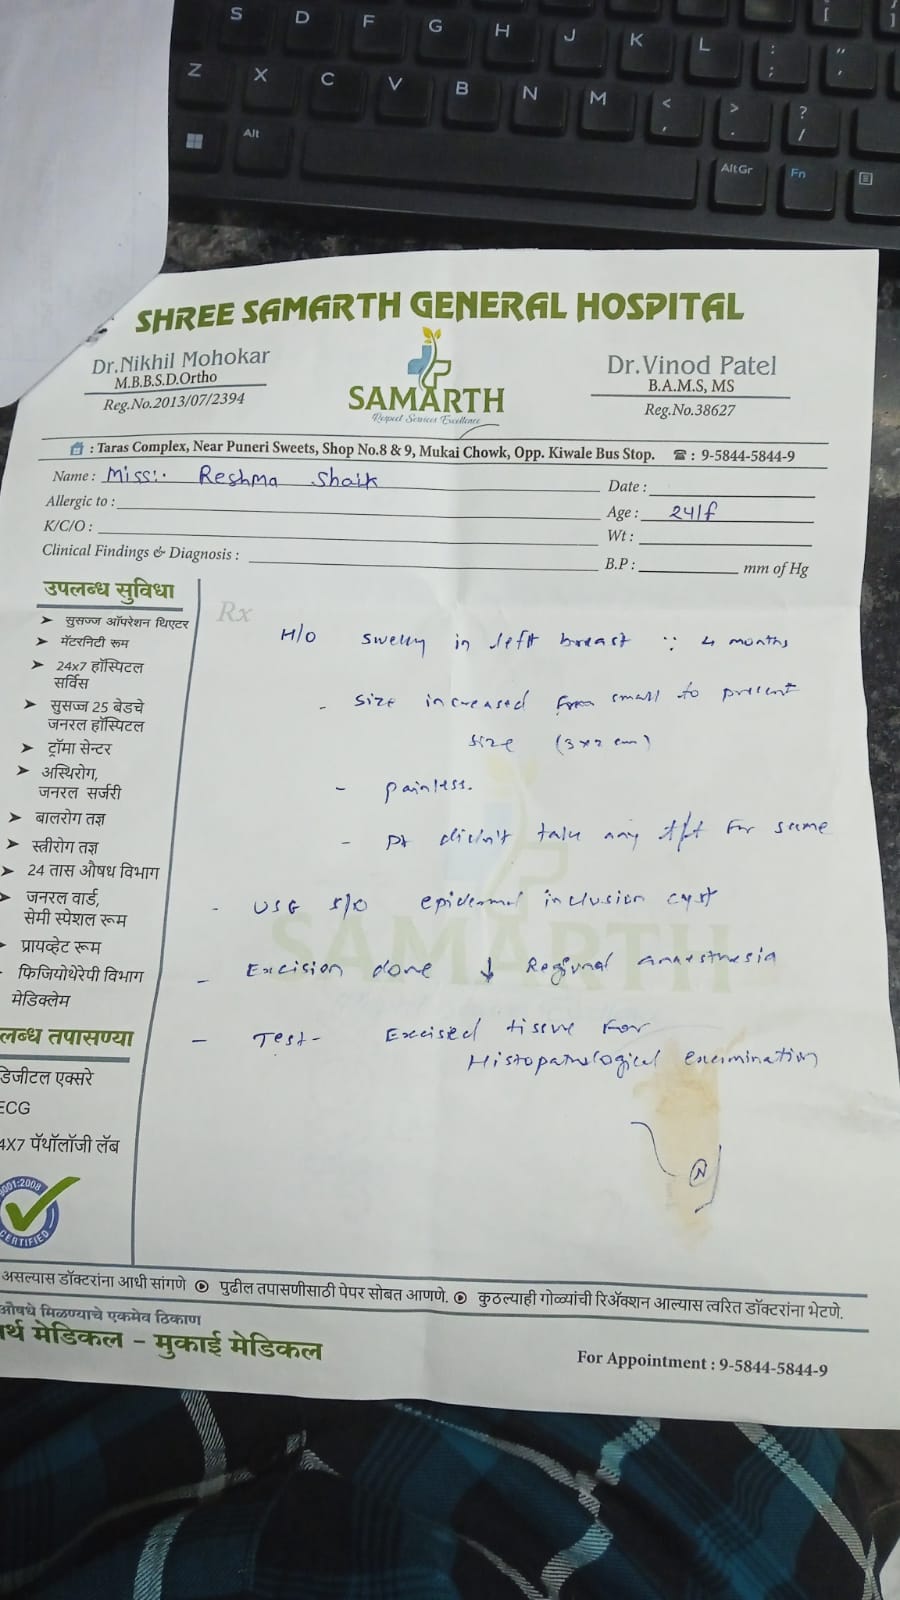 S D F G H J K L : ; " ' [ ]
Z X C V B N M < , > . ? /
Alt AltGr Fn
SHREE SAMARTH GENERAL HOSPITAL
Dr.Nikhil Mohokar
M.B.B.S.D.Ortho
Reg.No.2013/07/2394
SAMARTH
Respect Services Excellence
Dr.Vinod Patel
B.A.M.S, MS
Reg.No.38627
: Taras Complex, Near Puneri Sweets, Shop No.8 & 9, Mukai Chowk, Opp. Kiwale Bus Stop. ☎ : 9-5844-5844-9
Name : Miss:. Reshma Shaik
Date :
Allergic to :
Age : 24/f
K/C/O :
Wt :
Clinical Findings & Diagnosis :
B.P : mm of Hg
उपलब्ध सुविधा
➤ सुसज्ज ऑपरेशन थिएटर
➤ मॅटरनिटी रूम
➤ 24x7 हॉस्पिटल
सर्विस
➤ सुसज्ज 25 बेडचे
जनरल हॉस्पिटल
➤ ट्रॉमा सेन्टर
➤ अस्थिरोग,
जनरल सर्जरी
➤ बालरोग तज्ञ
➤ स्त्रीरोग तज्ञ
➤ 24 तास औषध विभाग
➤ जनरल वार्ड,
सेमी स्पेशल रूम
प्रायव्हेट रूम
फिजियोथेरेपी विभाग
मेडिक्लेम
लब्ध तपासण्या
डिजीटल एक्सरे
ECG
4X7 पॅथॉलॉजी लॅब
9001:2008
CERTIFIED
Rx
H/O swelling in left breast ∵ 4 months
- size increased from small to present
size (3x2 cm)
- painless.
- Pt didn't take any t/t for same
- USG s/o epidermal inclusion cyst
- Excision done ↓ Regional anaesthesia
- Test- Excised tissue for
Histopathological examination
SAMARTH
असल्यास डॉक्टरांना आधी सांगणे ⊙ पुढील तपासणीसाठी पेपर सोबत आणणे. ⊙ कुठल्याही गोळ्यांची रिॲक्शन आल्यास त्वरित डॉक्टरांना भेटणे.
औषधे मिळण्याचे एकमेव ठिकाण
र्थ मेडिकल – मुकाई मेडिकल
For Appointment : 9-5844-5844-9